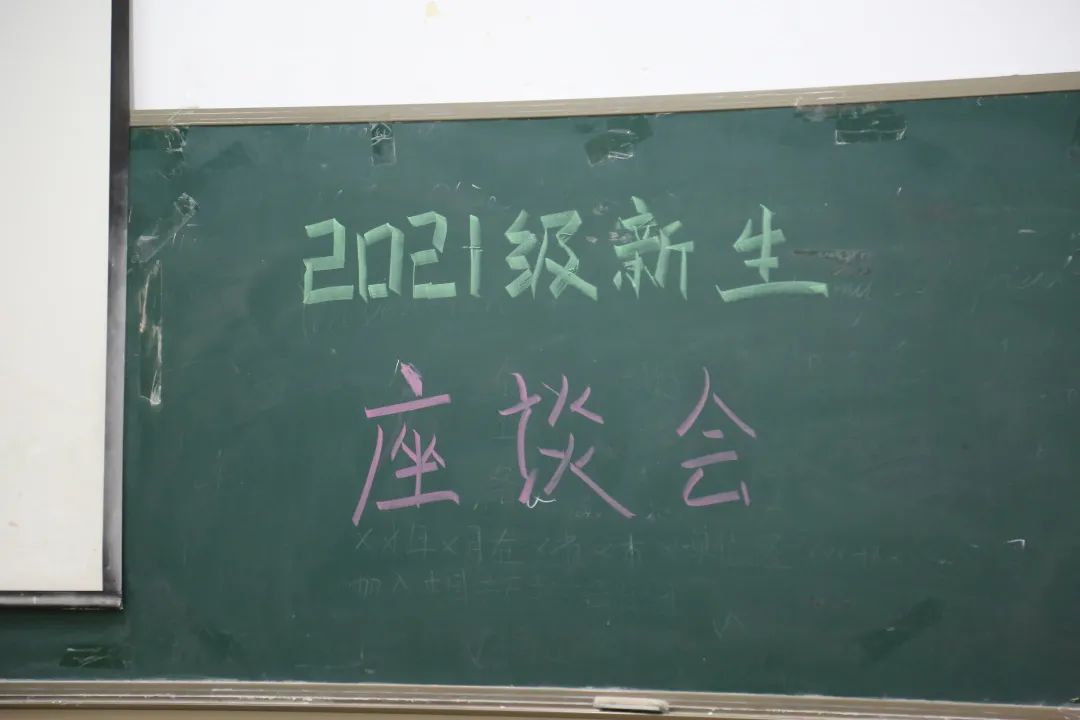 2021级新生
座谈会